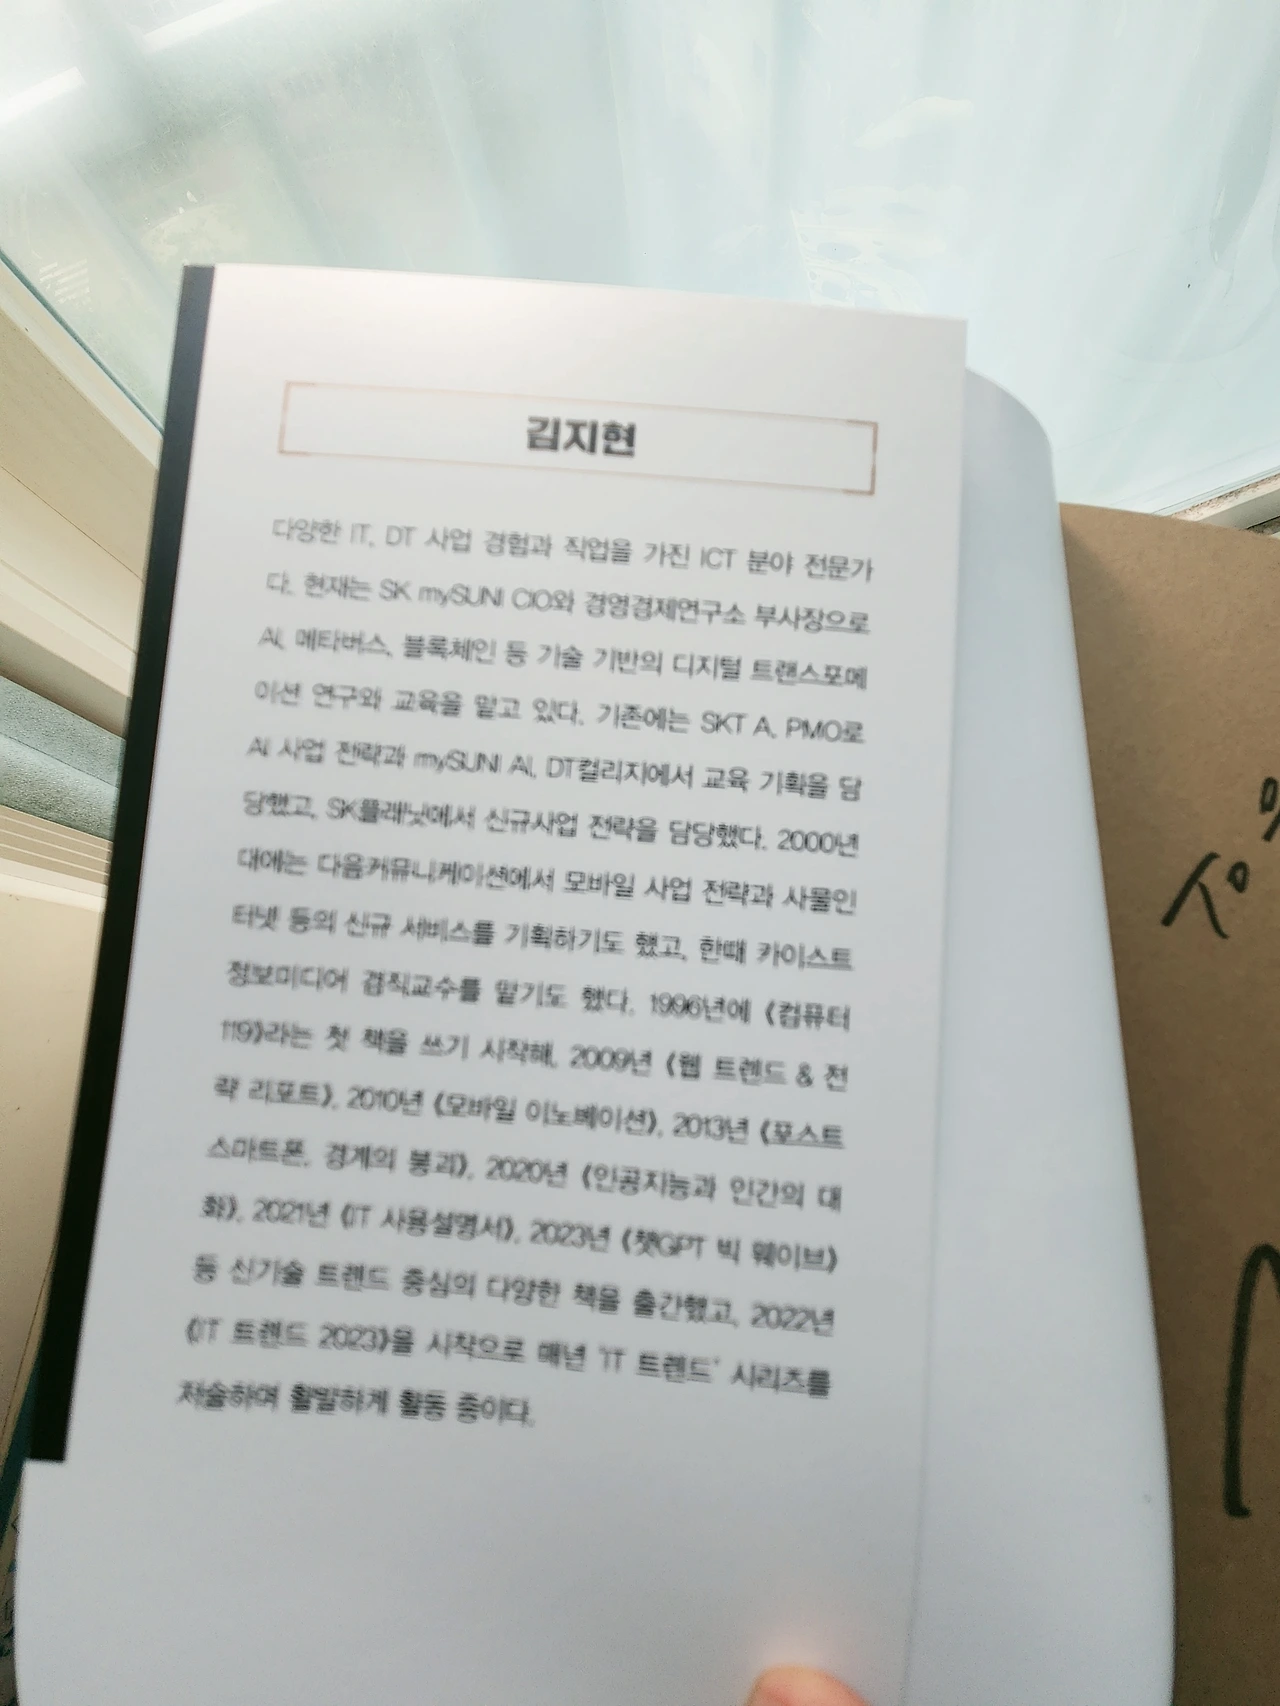 김지현
다양한 IT, DT 사업 경험과 직업을 가진 ICT 분야 전문가
다. 현재는 SK mySUNI CIO와 경영경제연구소 부사장으로
AI, 메타버스, 블록체인 등 기술 기반의 디지털 트랜스포메
이션 연구와 교육을 맡고 있다. 기존에는 SKT A. PMO로
AI 사업 전략과 mySUNI AI, DT컬리지에서 교육 기획을 담
당했고, SK플래닛에서 신규사업 전략을 담당했다. 2000년
대에는 다음커뮤니케이션에서 모바일 사업 전략과 사물인
터넷 등의 신규 서비스를 기획하기도 했고, 한때 카이스트
정보미디어 겸직교수를 맡기도 했다. 1996년에 《컴퓨터
119》라는 첫 책을 쓰기 시작해, 2009년 《웹 트렌드 & 전
략 리포트》, 2010년 《모바일 이노베이션》, 2013년 《포스트
스마트폰, 경계의 붕괴》, 2020년 《인공지능과 인간의 대
화》, 2021년 《IT 사용설명서》, 2023년 《챗GPT 빅 웨이브》
등 신기술 트렌드 중심의 다양한 책을 출간했고, 2022년
《IT 트렌드 2023》을 시작으로 매년 'IT 트렌드' 시리즈를
저술하며 활발하게 활동 중이다.